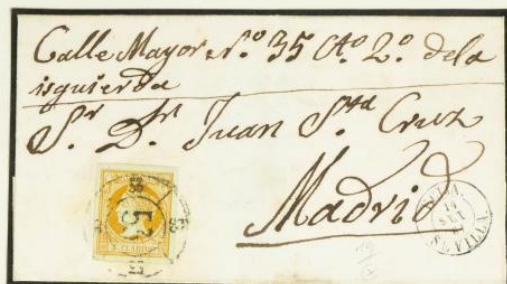 Calle Mayor N.º 35 Cto 2.º dela
isquierda
S.r D.n Juan S.ta Cruz
Madrid
52
SEVILLA